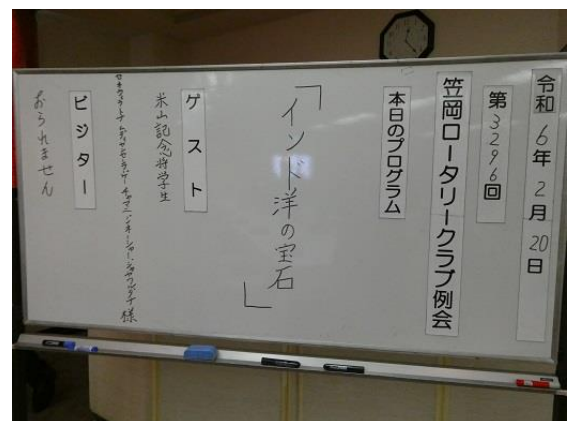 令和6年2月20日
第3296回
笠岡ロータリークラブ例会
本日のプログラム
「インド洋の宝石」
ゲスト
米山記念奨学生
様
ビジター
おられません